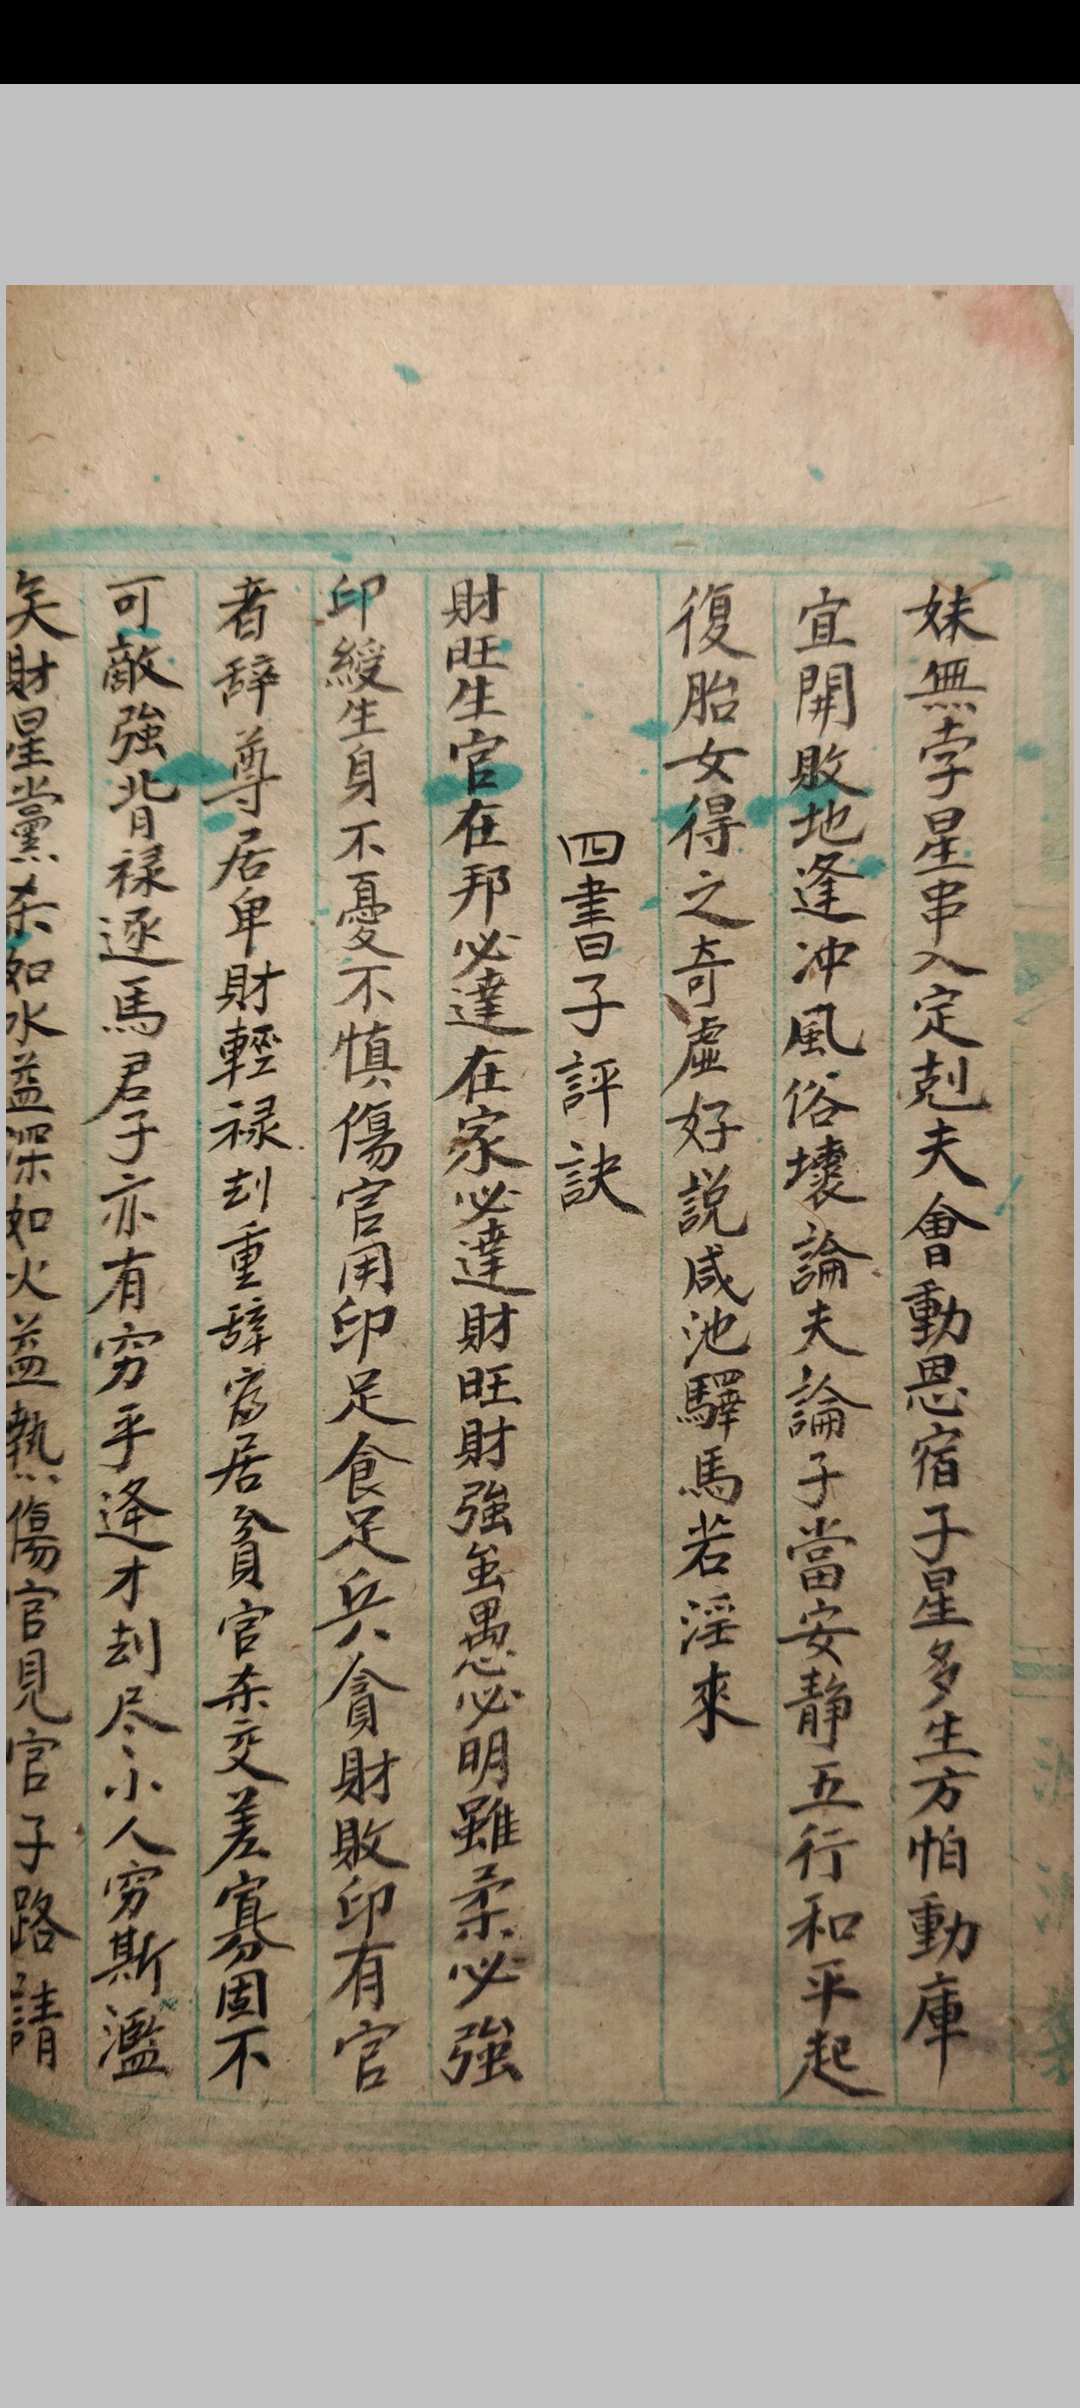 妹無孛星串入定剋夫會動恩宿子星多生方怕動庫
宜開敗地逢冲風俗壞論夫論子當安静五行和平起
復胎女得之奇虛好説咸池驛馬若淫來
四書子評訣
財旺生官在邦必達在家必達財旺財強虽愚必明雖柔必強
印綬生身不憂不慎傷官用印足食足兵貪財敗印有官
者辞尊居卑財輕禄刦重辞富居貧官杀交差寡固不
可敵強背禄逐馬君子亦有穷乎逢才刦尽小人穷斯濫
矣財星黨杀如水益深如火益熱傷官見官子路請